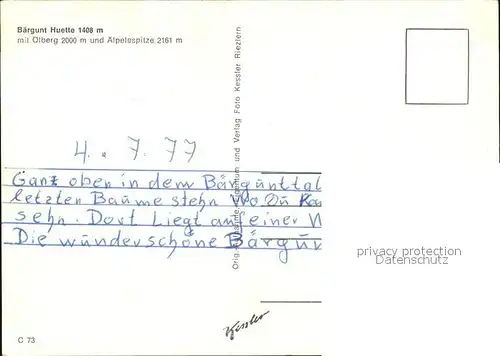 Bärgunt Huette 1408 m
mit Ölberg 2000 m und Älpelespitze 2161 m
4. 7. 77
Ganz oben in dem Bärgunttal
letzten Baume stehn Wo Du
sehn. Dort Liegt auf einer
Die wunderschöne
und Verlag Foto Kessler Riezlern
Kessler
privacy protection
Datenschutz
C 73